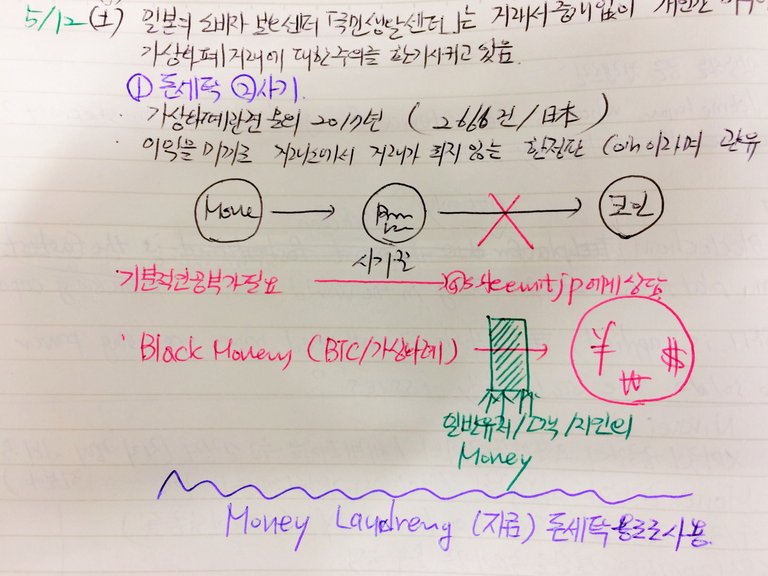 5/12 (土) 일본의 소비자 보호센터 「국민생활센터」는 거래서 중개없이 개인간
가상화폐 거래에 대한 주의를 환기시키고 있음.
① 돈세탁 ② 사기.
· 가상화폐관련 문의 2017년 ( 2666건/日本 )
· 이익을 미끼로 거래소에서 거래가 되지 않는 한정판 Coin이라며 권유
Mone
코인
사기꾼
· 기본적인 공부가 필요 @steemitjp에게 상담
· Black Money (BTC/가상화폐) ¥ ₩ $
일반유저/고객/지인의
Money
Money Laundreng (자금) 돈세탁 용도로 사용.